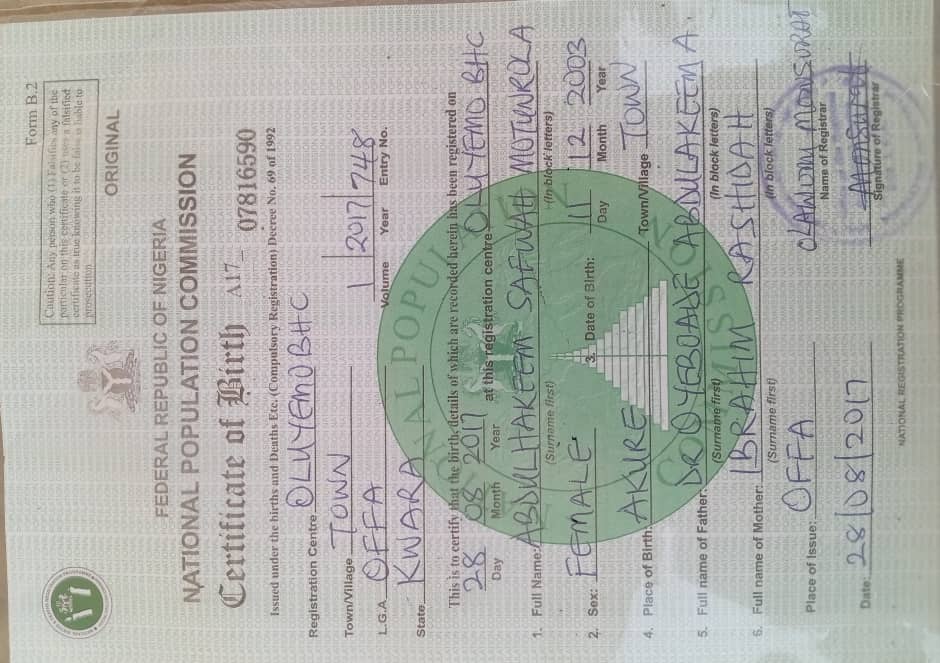 Form B.2
Caution: Any person who (1) Falsifies any of the
particular on this certificate or (2) uses a falsified
certificate as true knowing it to be false is liable to
prosecution.
ORIGINAL
FEDERAL REPUBLIC OF NIGERIA
NATIONAL POPULATION COMMISSION
Certificate of Birth A17 07816590
Issued under the births and Deaths Etc. (Compulsory Registration) Decree No. 69 of 1992
Registration Centre OLUYEMO BHC
Town/Village TOWN
L.G.A. OFFA 1 2017 748
Volume Year Entry No.
State KWARA
This is to certify that the birth, details of which are recorded herein has been registered on
28 08 2017 at this registration centre OLUYEMO BHC
Day Month Year
1. Full Name: ABDULHAKEEM SAFWAH MOTUNROLA
(Surname first) (In block letters)
2. Sex: FEMALE 3. Date of Birth: 11 12 2003
Day Month Year
4. Place of Birth: AKURE Town/Village TOWN
5. Full name of Father: DR OYEBOADE ABDULAKEEM A.
(Surname first) (In block letters)
6. Full name of Mother: IBRAHIM RASHIDAH
(Surname first) (In block letters)
Place of Issue: OFFA OLAWUMI MONSURAT
Name of Registrar
Date: 28/08/2017
Signature of Registrar
NATIONAL REGISTRATION PROGRAMME